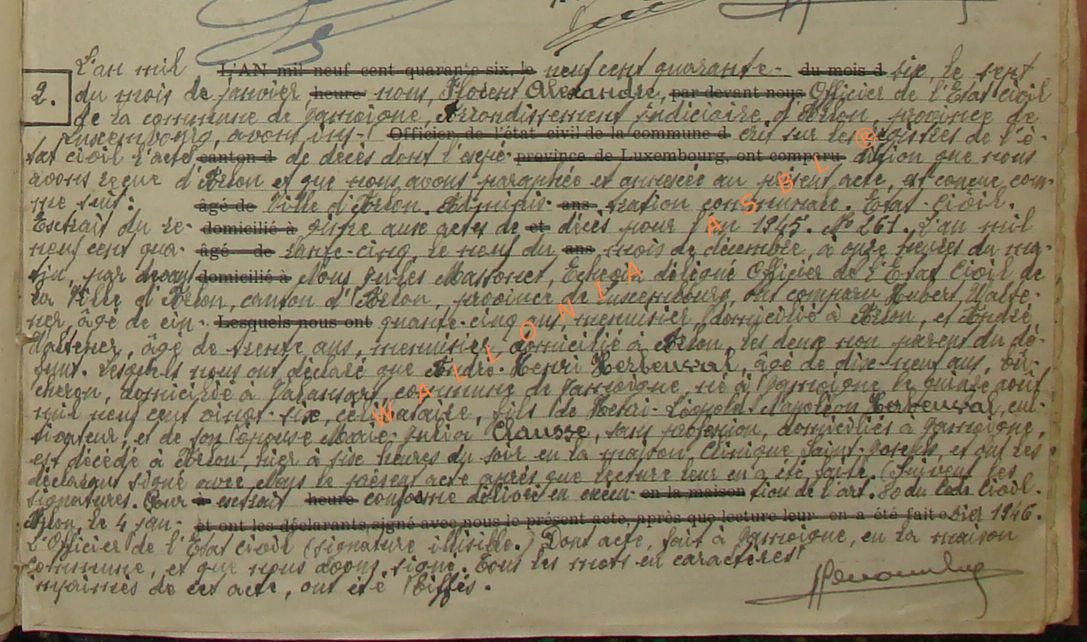 L'an mil L'AN mil neuf cent quarante-six, le neuf cent quarante- du mois d six, le sept
2. du mois de janvier heure nous, Florent Alexandre, par devant nous Officier de l'Etat Civil
de la commune de Jamoigne, Arrondissement judiciaire d'Arlon, province de
Luxembourg, avons ins- Officier de l'état civil de la commune d crit sur les registres de l'é-
tat civil l'acte canton d de décès dont l'expé- province de Luxembourg, ont comparu dition que nous
avons reçue d'Arlon et que nous avons paraphée et annexée au présent acte, est conçue com-
me suit: âgé de Ville d'Arlon. Adminis- ans tration communale. Etat-Civil.
Extrait du re- domicilié à gistre aux actes de et décès pour l'an 1945. N° 261. L'an mil
neuf cent qua- âgé de rante-cinq, le neuf du ans mois de décembre, à onze heures du ma-
tin, par devant domicilié à Nous Jules Massonet, Echevin délégué Officier de l'Etat Civil de
la Ville d'Arlon, canton d'Arlon, province de Luxembourg, ont comparu Hubert Walte-
ner, âgé de cin- Lesquels nous ont quante-cinq ans, menuisier, domicilié à Arlon, et André
Waltener, âgé de trente ans, menuisier, domicilié à Arlon, les deux non parent du dé-
funt. Lesquels nous ont déclaré que André-Henri Herbeuval, âgé de dix-neuf ans, bû-
cheron, domicilié à Valansart, commune de Jamoigne, né à Jamoigne, le quinze août
mil neuf cent vingt-six, célibataire, fils de Henri-Léopold-Napoléon Herbeuval, cul-
tivateur, et de son épouse Marie-Julia Clausse, sans profession, domiciliés à Jamoigne,
est décédé à Arlon, hier à six heures du soir en la maison, Clinique Saint-Joseph, et ont les
déclarants signé avec Nous le présent acte après que lecture leur en a été faite. (Suivent les
signatures. Pour à extrait heure conforme délivré en exécu- en la maison tion de l'art. 80 du Code Civil.
Arlon, le 4 jan- et ont les déclarants, signé avec nous le présent acte, après que lecture leur en a été faite vier 1946.
L'Officier de l'Etat Civil (signature illisible.) Dont acte, fait à Jamoigne, en la maison
communale, et que nous avons signé. Tous les mots en caractères
imprimés de cet acte, ont été biffés.
WALLONIA ASBL ®